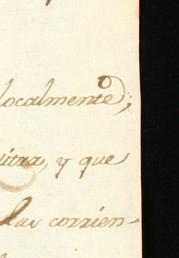 localmente,
y que
las corrien-